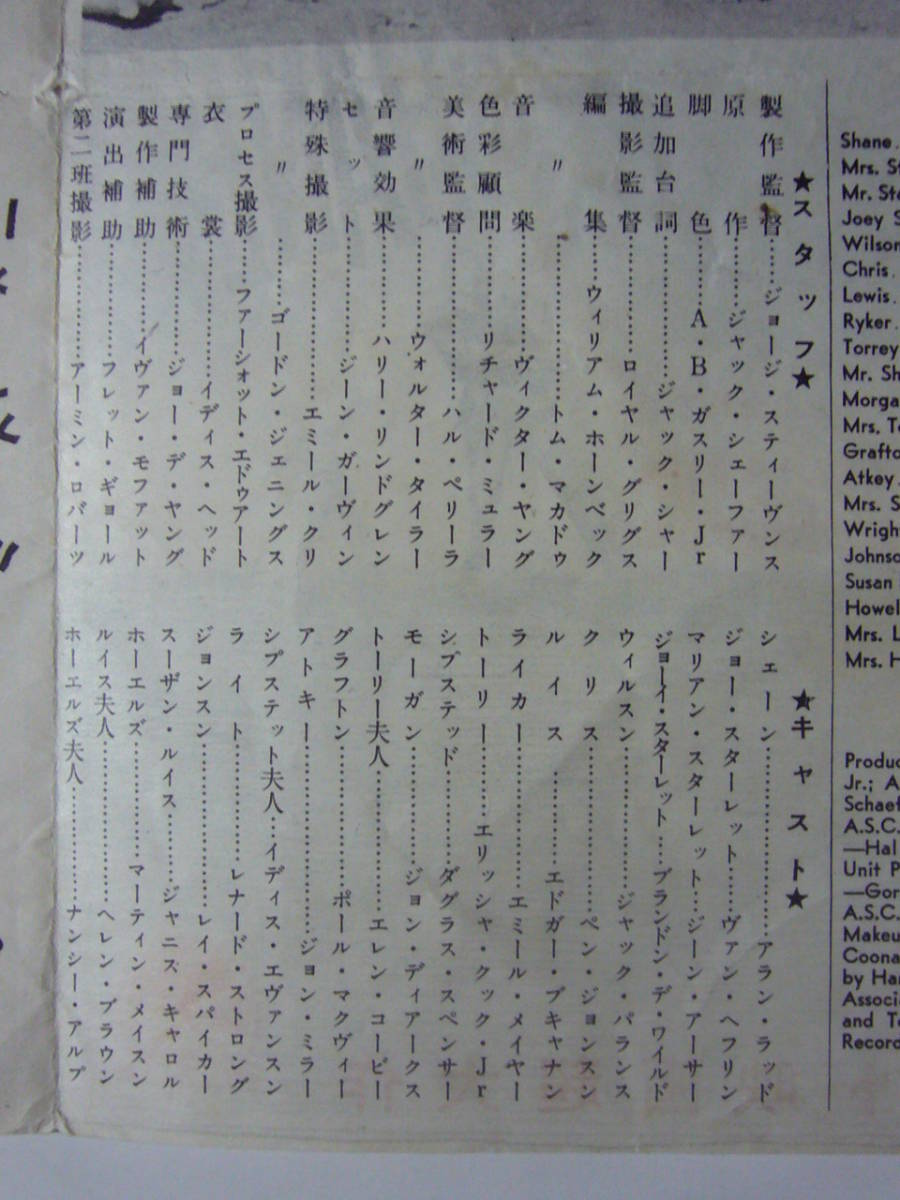 ★スタッフ★
製作監督…………ジョージ・スティーヴンス
原作…………ジャック・シェーファー
脚色…………A・B・ガスリー・Jr
追加台詞…………ジャック・シャー
撮影監督…………ロイヤル・グリグス
編集…………ウィリアム・ホーンベック
〃…………トム・マカドゥ
音楽…………ヴィクター・ヤング
色彩顧問…………リチャード・ミュラー
美術監督…………ハル・ペリーラ
〃…………ウォルター・タイラー
音響効果…………ハリー・リンドグレン
セット…………ジーン・ガーヴィン
特殊撮影…………エミール・クリ
〃…………ゴードン・ジェニングス
プロセス撮影……ファーシォット・エドゥアート
衣裳…………イディス・ヘッド
専門技術…………ジョー・デ・ヤング
製作補助…………イヴァン・モファット
演出補助…………フレット・ギョール
第二班撮影…………アーミン・ロバーツ
★キャスト★
シェーン…………アラン・ラッド
ジョー・スターレット……ヴァン・ヘフリン
マリアン・スターレット……ジーン・アーサー
ジョーイ・スターレット……ブランドン・デ・ワイルド
ウィルスン…………ジャック・パランス
クリス…………ベン・ジョンスン
ルイス…………エドガー・ブキャナン
ライカー…………エミール・メイヤー
トーリー…………エリッシャ・クック・Jr
シブステッド…………ダグラス・スペンサー
モーガン…………ジョン・ディアークス
トーリー夫人…………エレン・コービー
グラフトン…………ポール・マクヴィー
アトキー…………ジョン・ミラー
シプステット夫人……イディス・エヴァンスン
ライト…………レナード・ストロング
ジョンスン…………レイ・スパイカー
スーザン・ルイス……ジャニス・キャロル
ホーエルズ…………マーティン・メイスン
ルイス夫人…………ヘレン・ブラウン
ホーエルズ夫人…………ナンシー・アルプ
Shane.
Mrs. St
Mr. Ste
Joey S
Wilson
Chris.
Lewis.
Ryker.
Torrey
Mr. Sh
Morga
Mrs. To
Grafto
Atkey.
Mrs. S
Wright
Johnso
Susan
Howel
Mrs. L
Mrs. H
Produc
Jr.; A
Schaef
A.S.C.
—Hal
Unit P
—Gor
A.S.C.
Makeu
Coona
by Har
Associa
and Te
Record